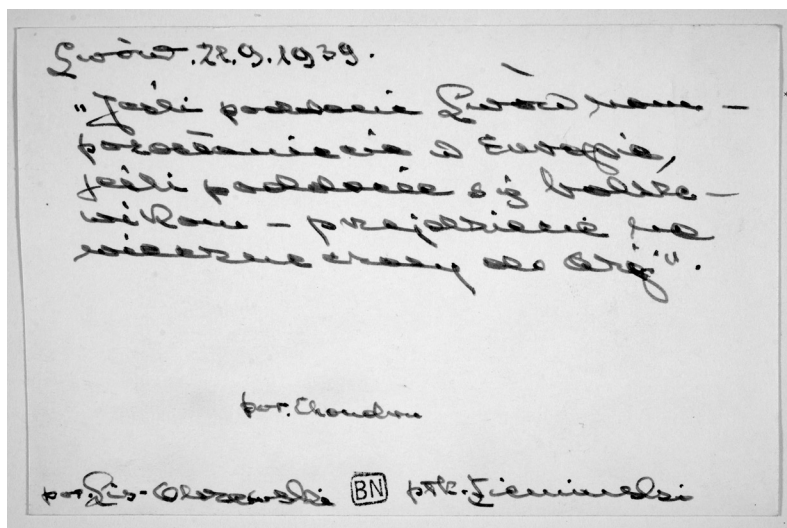 Lwów. 21.9.1939.
"Jeśli poddacie Lwów nam –
pozostaniecie w Europie,
jeśli poddacie się bolsze-
wikom – przejdziecie na
wieczne czasy do Azji".
por.
por. Lis-Olszewski BN płk.